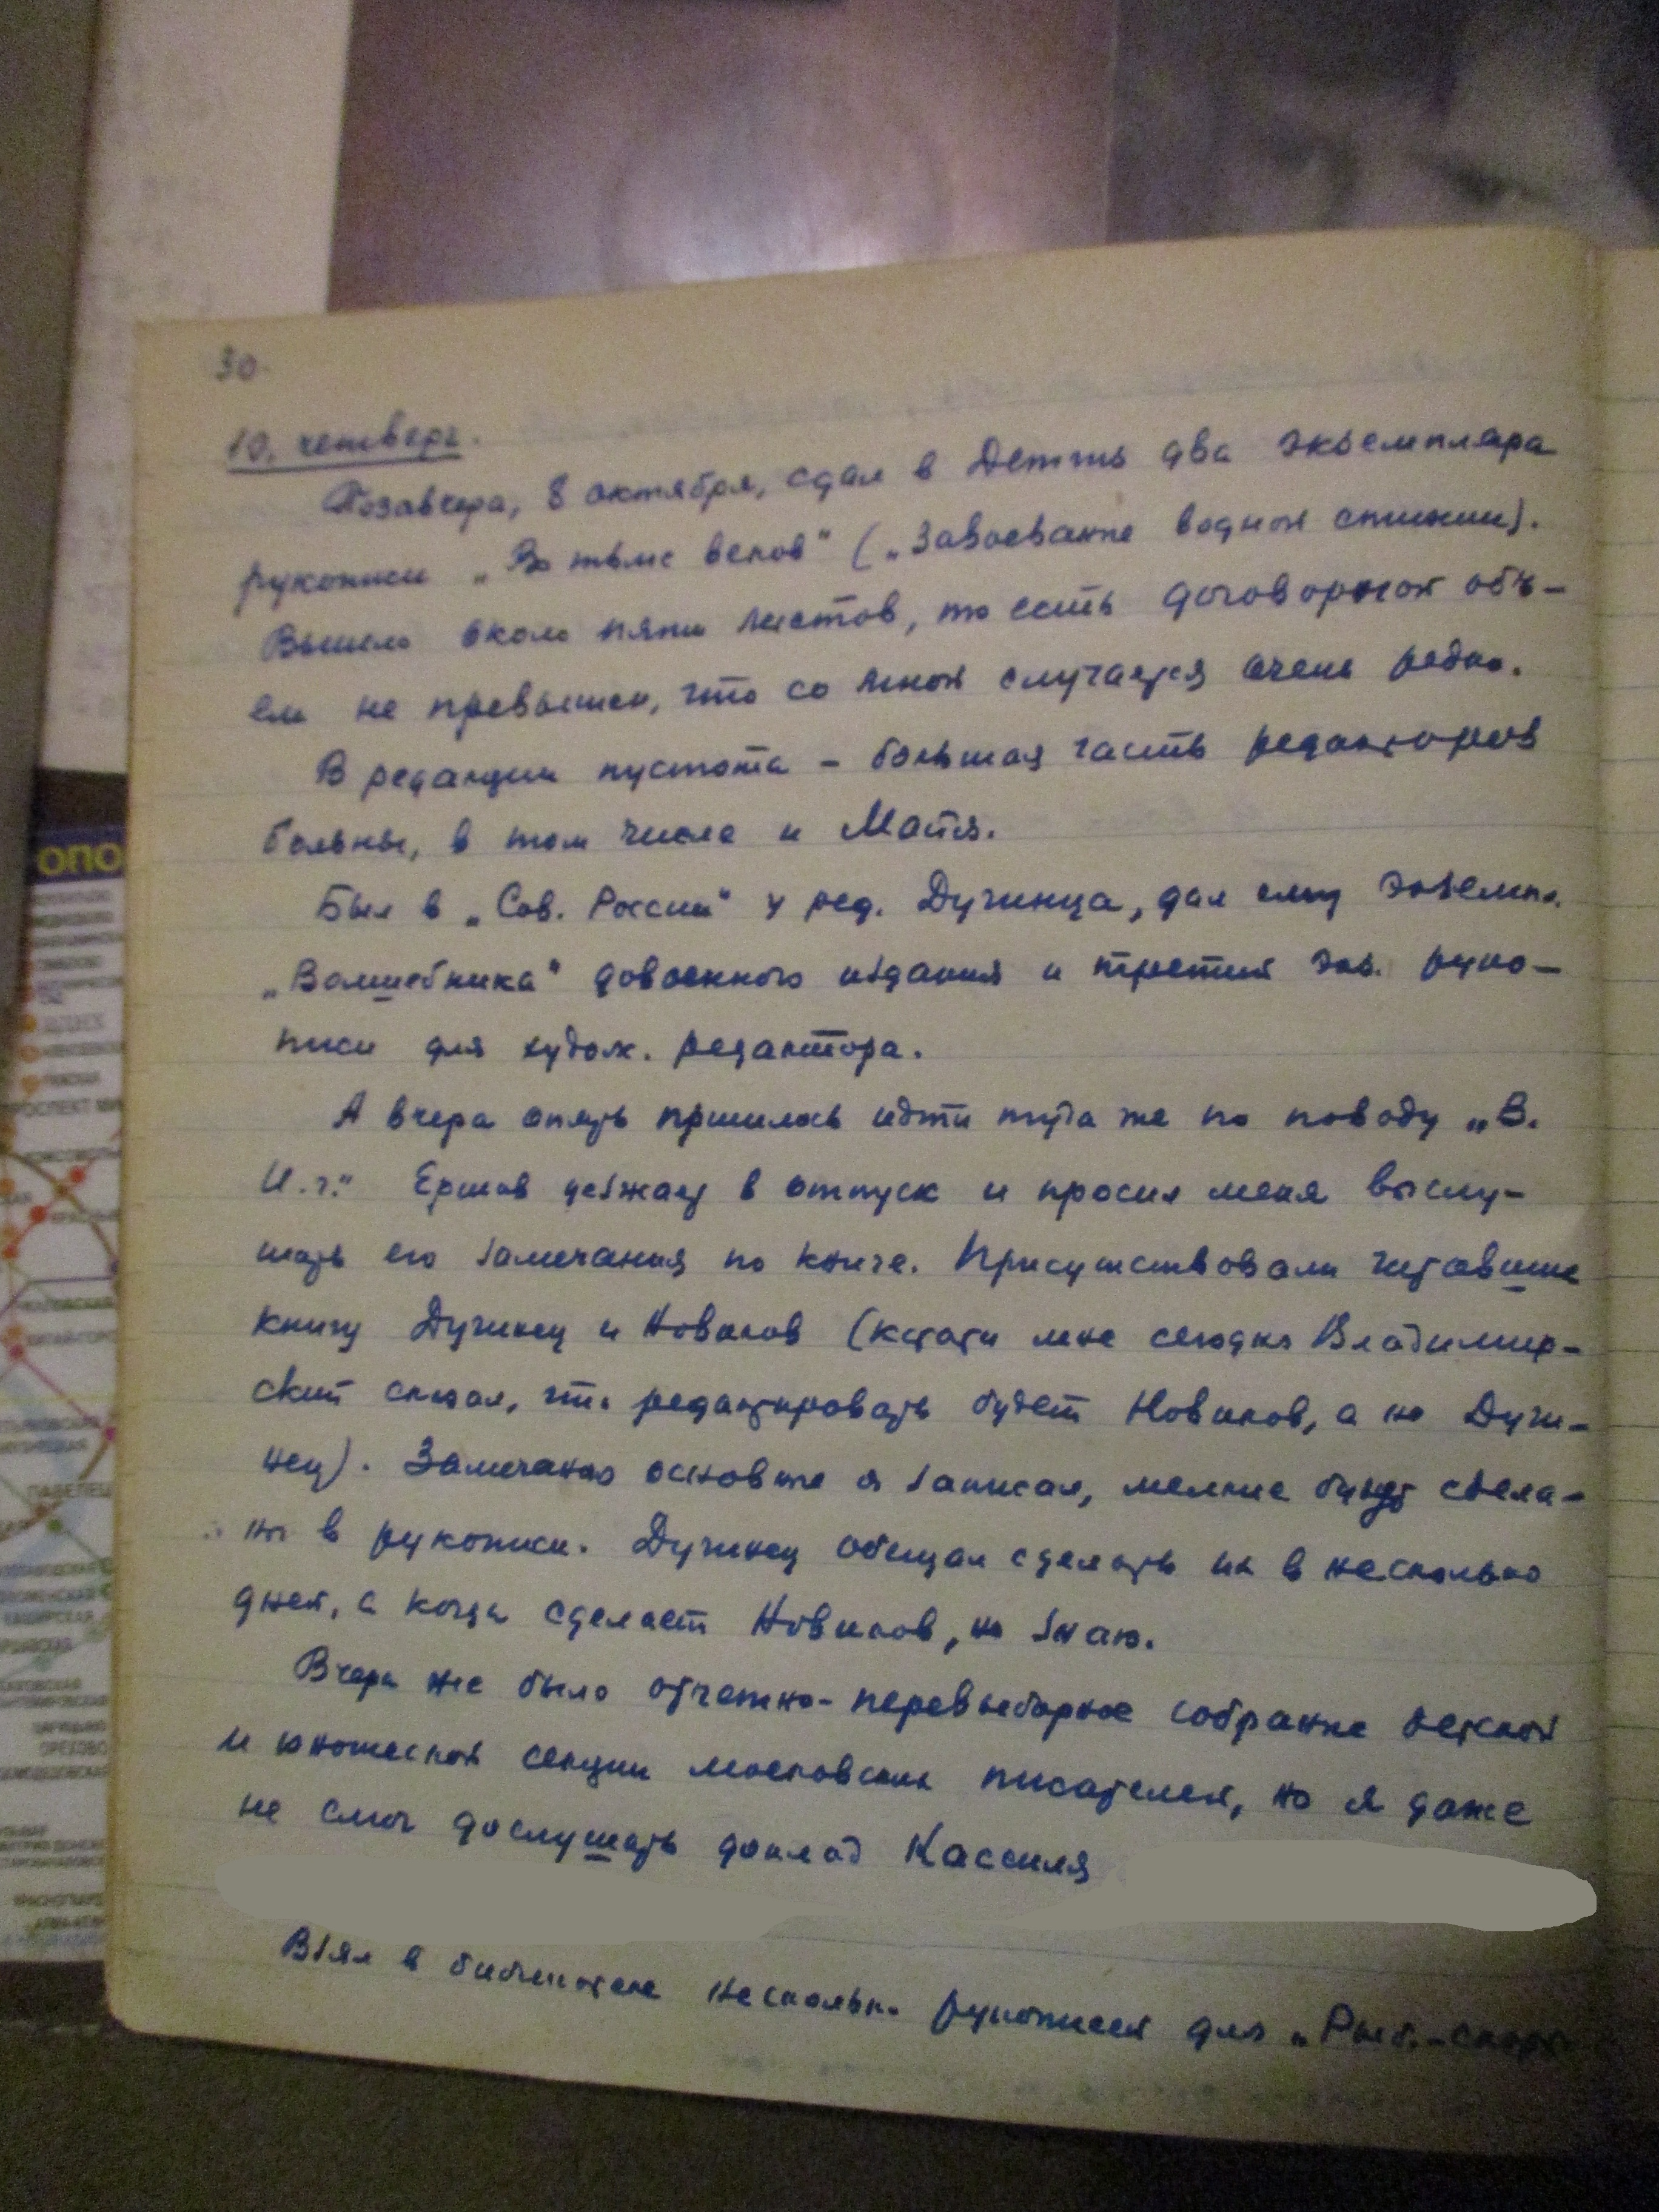 30
10. четверг.
Позавчера, 8 октября, сдал в Детгиз два экземпляра
рукописи „Во тьме веков“ („Завоевание водной стихии).
Вышло около пяти листов, то есть договорной объ-
ем не превышен, что со мной случается очень редко.
В редакции пустота – большая часть редакторов
больны, в том числе и Майя.
Был в „Сов. России“ у ред. Дучинца, дал ему экземпл.
„Волшебника“ довоенного издания и третий экз. руко-
писи для худож. редактора.
А вчера опять пришлось идти туда же по поводу „В.
И.г.“ Ершов уезжает в отпуск и просил меня выслу-
шать его замечания по книге. Присутствовали читавшие
книгу Дучинец и Новиков (кстати мне сегодня Владимир-
ский сказал, что редактировать будет Новиков, а не Дучи-
нец). Замечания основные я записал, мелкие будут сдела-
ны в рукописи. Дучинец обещал сделать их в несколько
дней, а когда сделает Новиков, не знаю.
Вчера же было отчетно-перевыборное собрание детской
и юношеской секции московских писателей, но я даже
не смог дослушать доклад Кассиля
Взял в библиотеке несколько рукописей для „Рыб.-спорт
ОПО
ПРОСПЕКТ МИ
КИТАЙ-ГОРО
ПАВЕЛЕЦ
КАШИРСКАЯ
ОРЕХОВО